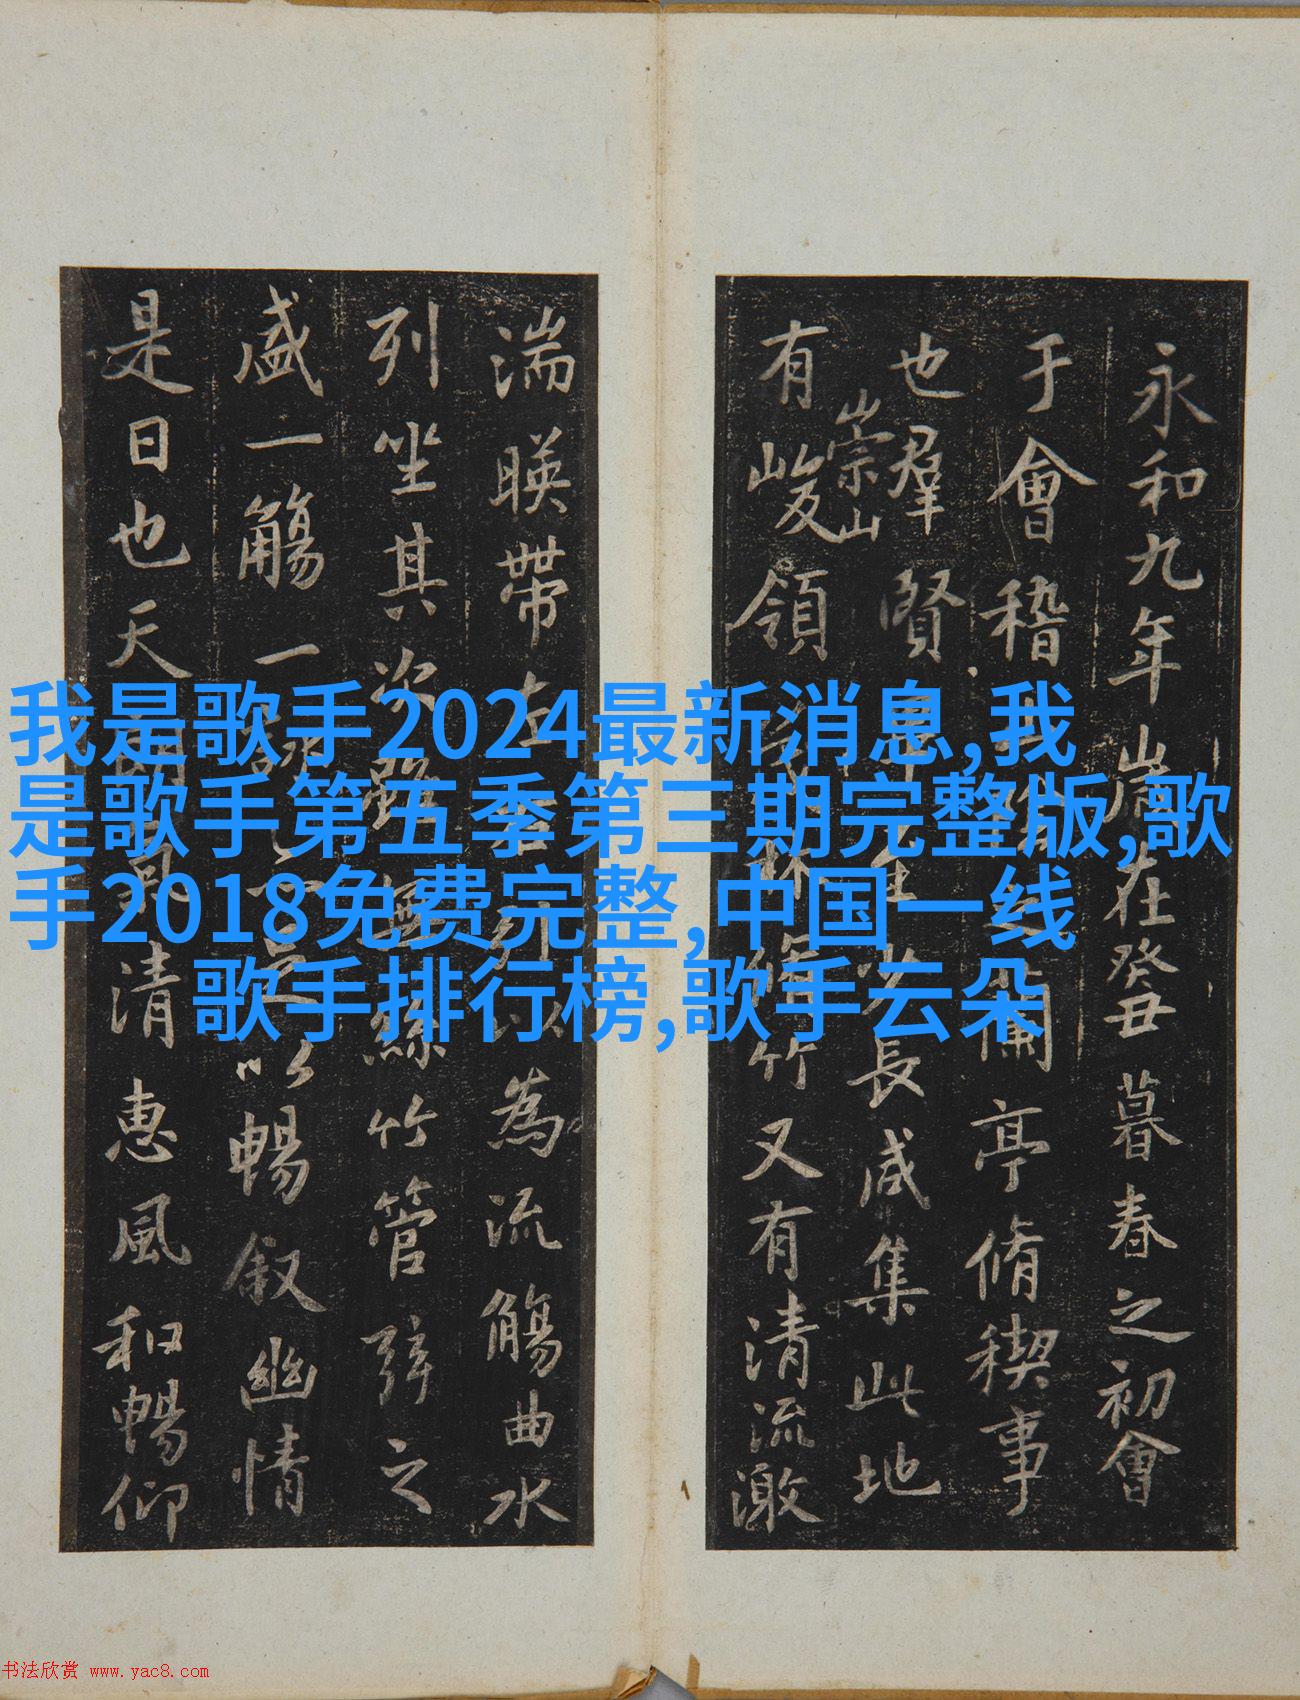 我是歌手2024最新消息,我
是歌手第五季第三期完整版,歌
手2018免费完整,中国一线
歌手排行榜,歌手云朵
永和九年歲在癸丑暮春之初會
于會稽蘭亭脩禊事
也羣賢長咸集此地
崇山
有峻領竹又有清流激
湍暎帶左以為流觴曲水
列坐其次絲竹管弦之
盛一觴一以暢叙幽情
是日也天清惠風和暢仰
书法欣赏 www.yac8.com